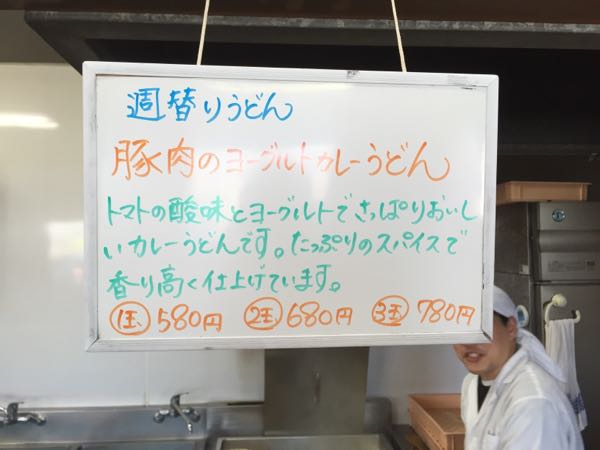 週替りうどん
豚肉のヨーグルトカレーうどん
トマトの酸味とヨーグルトでさっぱりおいし
いカレーうどんです。たっぷりのスパイスで
香り高く仕上げています。
1玉 580円 2玉 680円 3玉 780円